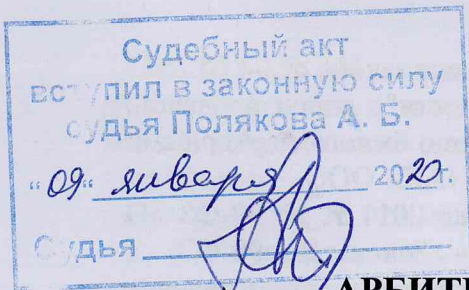 Судебный акт
вступил в законную силу
судья Полякова А. Б.
"09" января 2020г.
Судья
АРБИТ